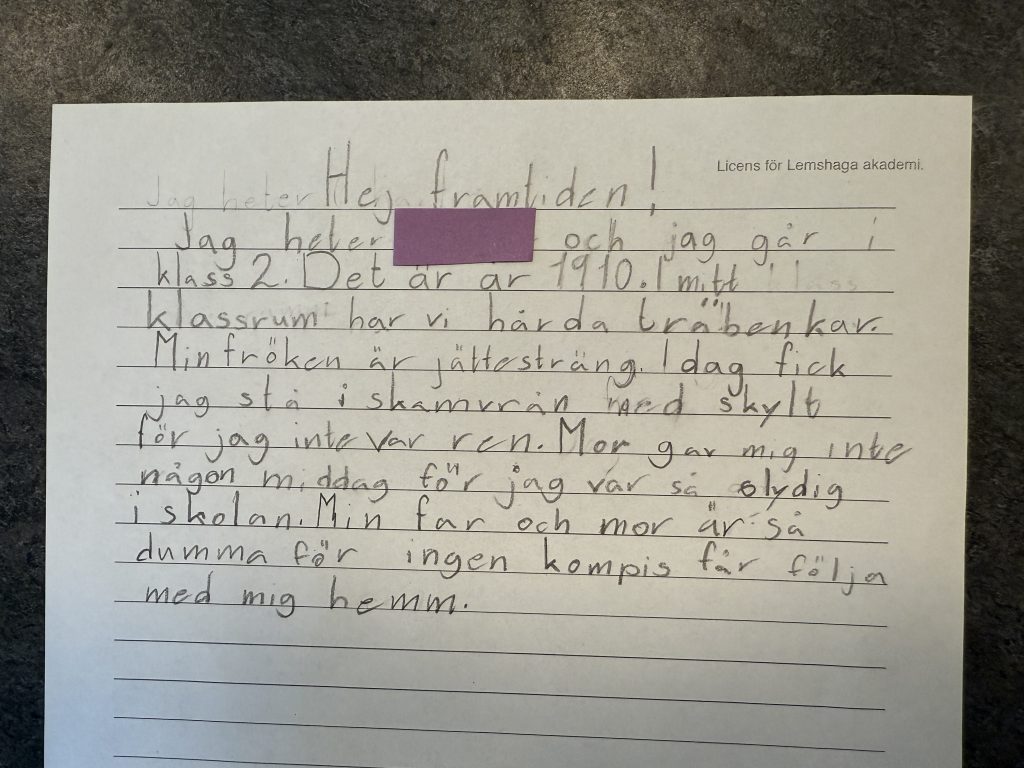 Licens för Lemshaga akademi.
Jag heter Hej framtiden!
Jag heter och jag går i
klass 2. Det är år 1910. I mitt klass
klassrum har vi hårda träbenkar.
Min fröken är jättesträng. Idag fick
jag stå i skamvrån med skylt
för jag inte var ren. Mor gav mig inte
någon middag för jag var så olydig
i skolan. Min far och mor är så
dumma för ingen kompis får följa
med mig hemm.